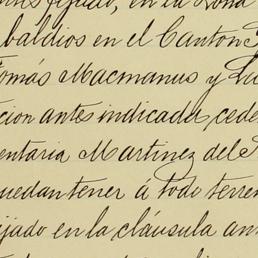 fijado, en la Zona
baldios en el Canton
Tomás Macmanus y Lu
cion antes indicada, cede
entaria Martinez del
uedan tener á todo terren
ijado en la cláusula an